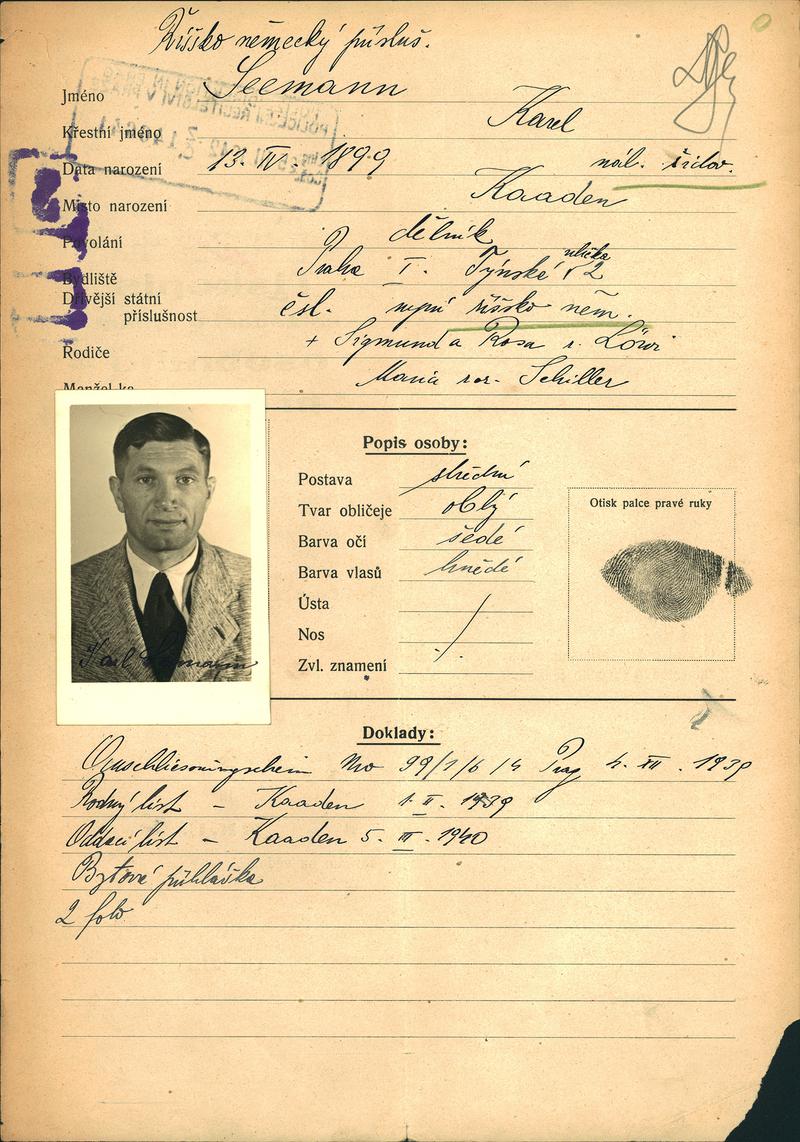 Říšsko německý přísluš.
Jméno Seemann
Křestní jméno Karel
Data narození 13. IV. 1899 nál. židov.
Místo narození Kaaden
Povolání dělník
Bydliště Praha I. Týnská ulička 2
Dřívější státní
příslušnost čsl. nyní říšsko něm.
Rodiče + Sigmund a Rosa r. Löwi
Manžel-ka Maria roz. Schiller
Popis osoby:
Postava střední
Tvar obličeje oblý
Barva očí šedé
Barva vlasů hnědé
Ústa
Nos
Zvl. znamení
Otisk palce pravé ruky
Karl Seemann
Doklady:
Nro 99/1/6 Prag 4. XII. 1939
Rodný list – Kaaden 1. II. 1939
Oddací list – Kaaden 5. III. 1940
Bytová přihláška
2 foto